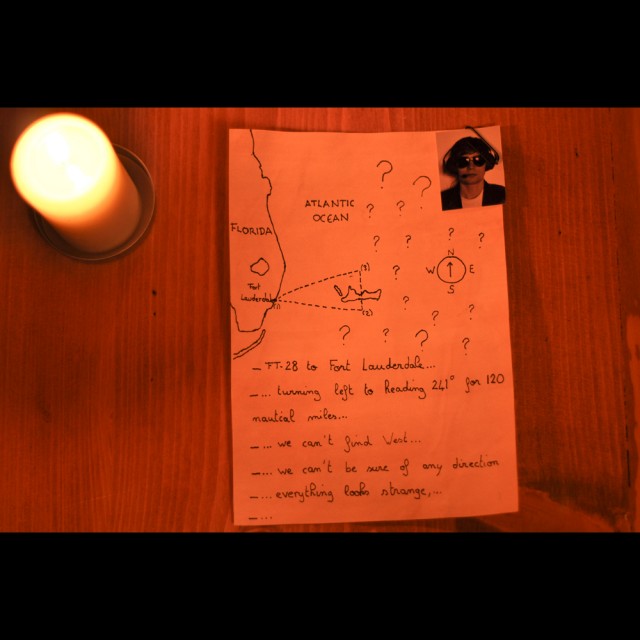 ?
?
ATLANTIC
OCEAN
? ?
FLORIDA
? ? ? ?
N
W E
S
Fort
Lauderdale
(1)
(3)
?
(2)
?
? ?
? ? ? ?
_ FT-28 to Fort Lauderdale...
_... turning left to heading 241° for 120
nautical miles...
_... we can't find West...
_... we can't be sure of any direction
_... everything looks strange,...
_...